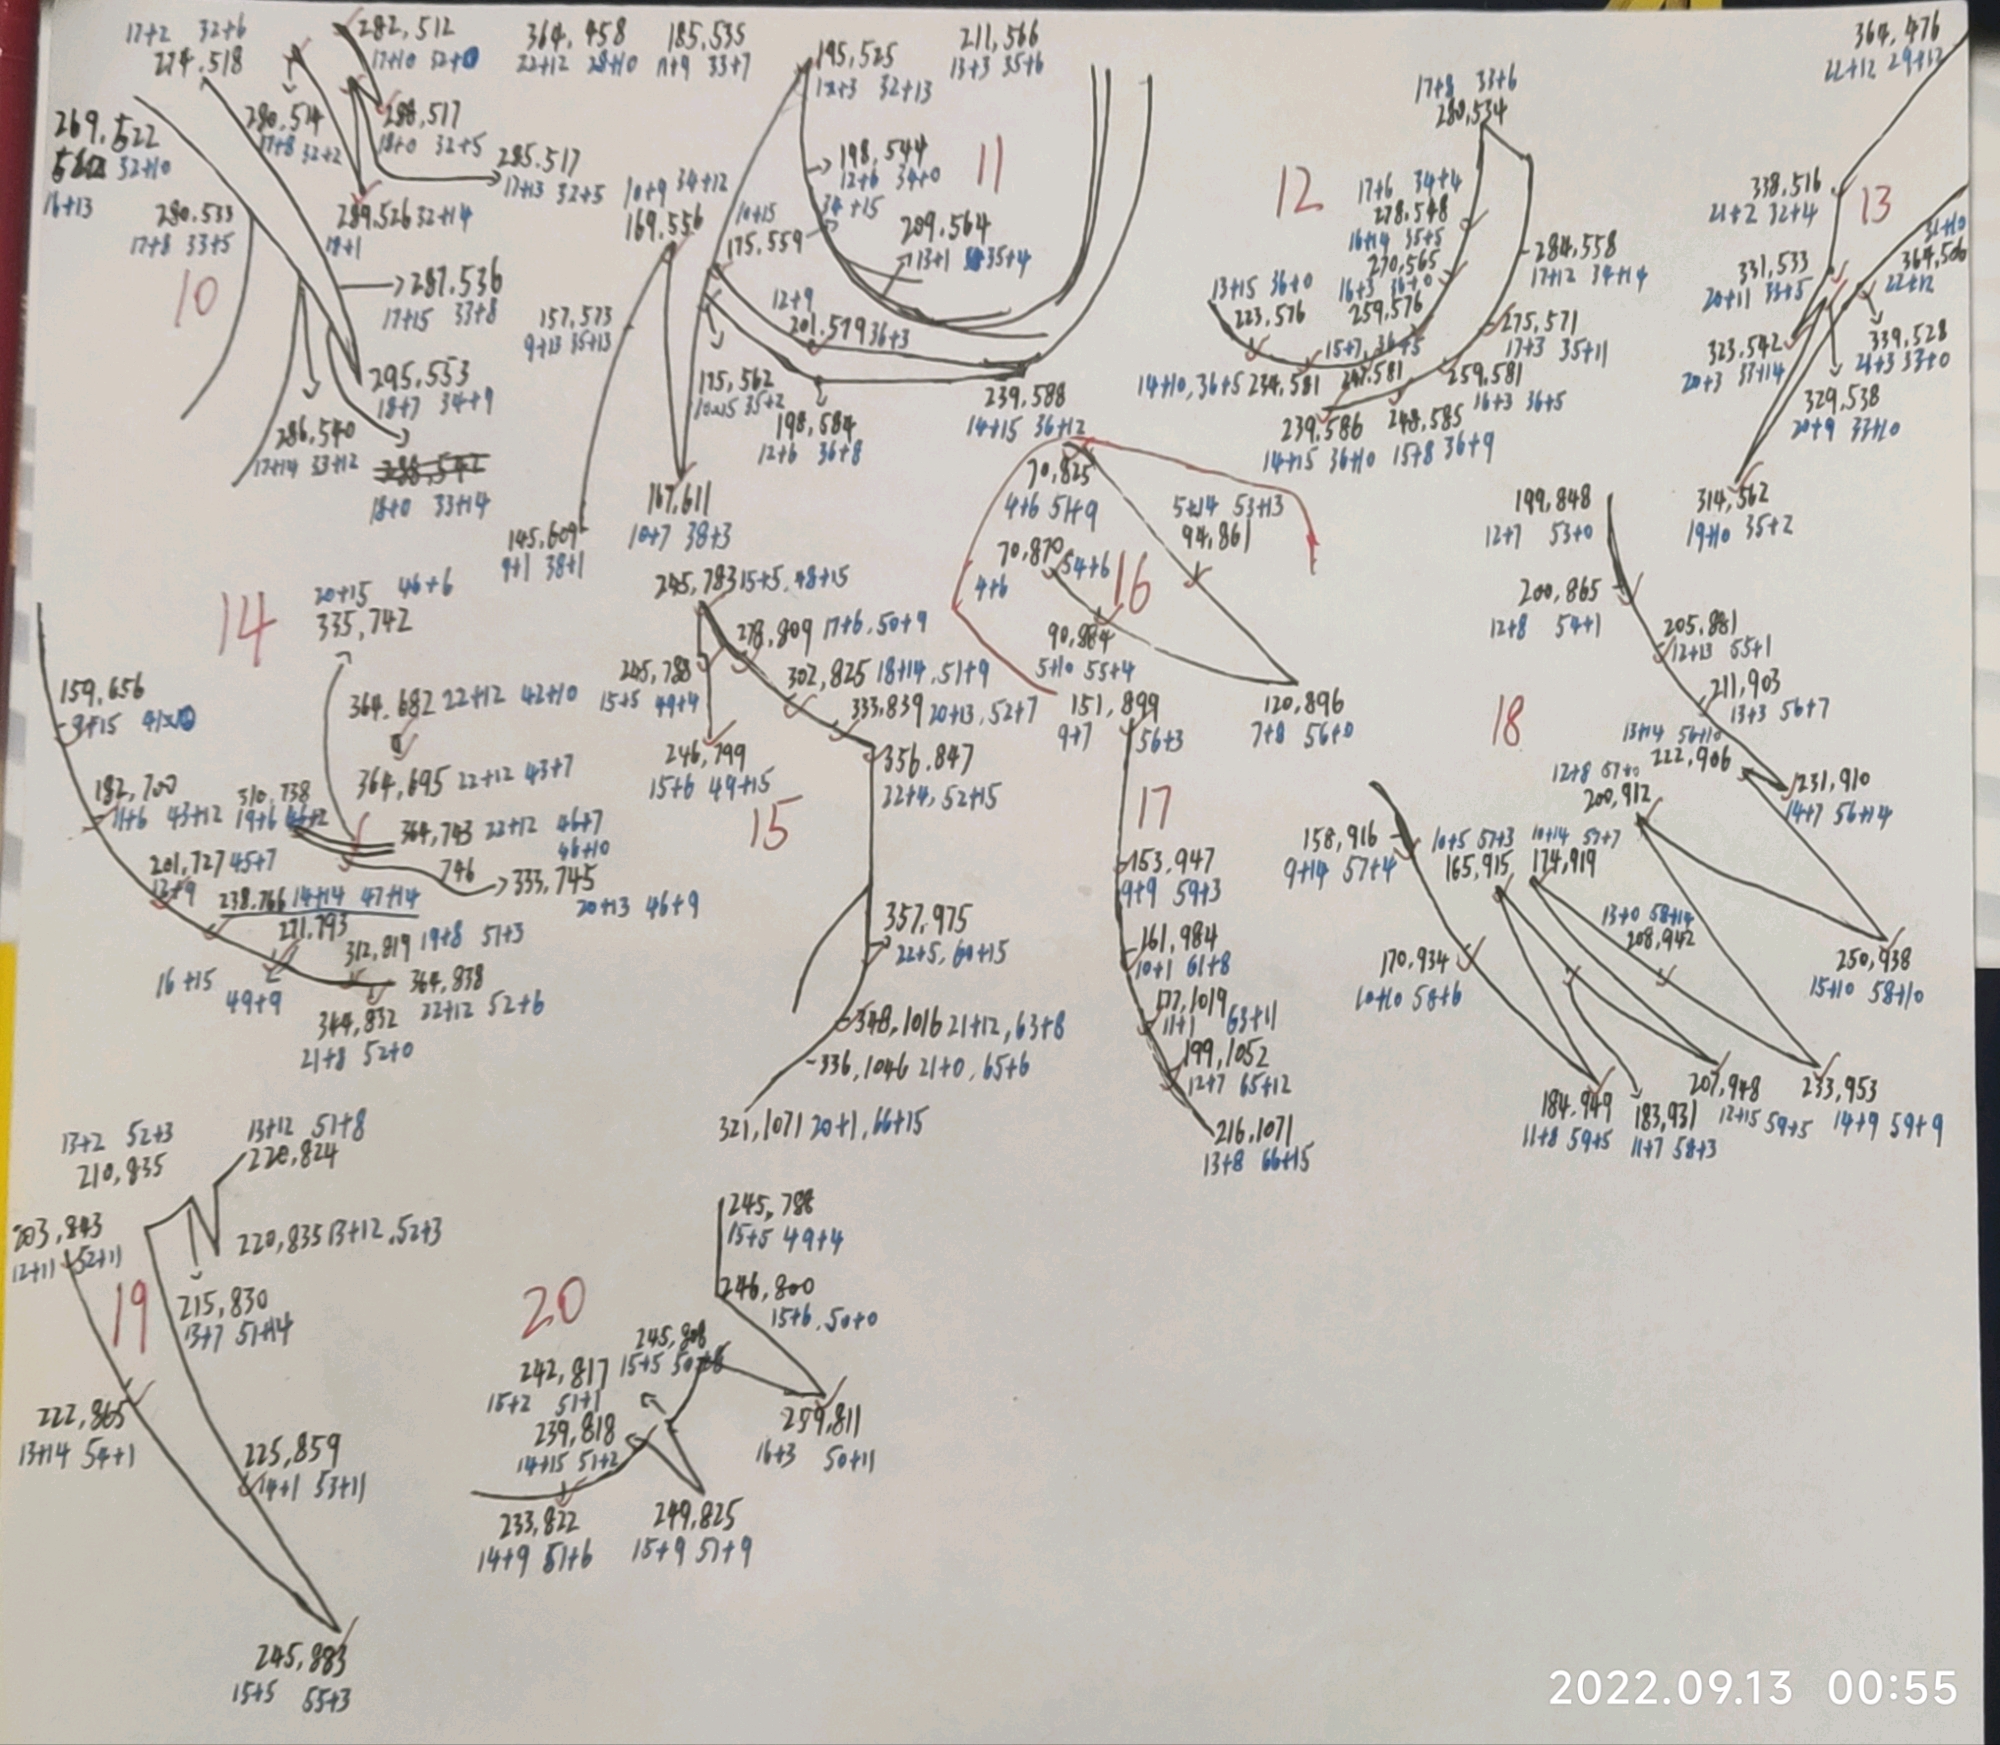 17+2 32+6
274.518
282,512
17+10 32+0
364,458
22+12 28+10
185,535
11+9 33+7
195,525
12+3 32+13
211,566
13+3 35+6
364,476
22+12 29+12
269.522
32+10
16+13
280,514
17+8 32+2
288,517
18+0 32+5
285.517
17+13 32+5
289.526 32+14
18+1
280.533
17+8 33+5
10
287.536
17+15 33+8
295,553
18+7 34+9
286,540
17+14 33+12
288,542
18+0 33+14
10+9 34+12
169,556
157,573
9+13 35+13
145,609
9+1 38+1
167,611
10+7 38+3
198,544
12+6 34+0
11
10+15 34+15
175,559
209.564
13+1 35+4
12+9
201.579 36+3
175,562
10+15 35+2
198,584
12+6 36+8
239,588
14+15 36+12
12
17+8 33+6
280,534
17+6 34+4
278,548
16+14 35+5
270,565
16+3 36+0
259,576
13+15 36+0
223,576
284,558
17+12 34+14
275,571
17+3 35+11
15+7, 36+5
14+10, 36+5 234,581
247,581
259,581
16+3 36+5
239,586
14+15 36+10
248,585
15+8 36+9
338,516
21+2 32+4
13
331,533
20+11 33+5
31+10
364,506
22+12
323.542
20+3 33+14
339,528
21+3 33+0
329,538
20+9 33+10
314,562
19+10 35+2
70,825
4+6 51+9
5+14 53+13
94,861
70,870 54+6
4+6
16
90,884
5+10 55+4
120,896
7+8 56+0
14
20+15 46+6
335,742
159,656
9+15 41+0
364,682 22+12 42+10
364,695 22+12 43+7
182,700
11+6 43+12
310,738
19+6 46+2
364,743 22+12 46+7
46+10
746
333,745
20+13 46+9
201,727 45+7
12+9
238.766 14+14 47+14
271.793
16+15
49+9
312,819 19+8 51+3
364,838
22+12 52+6
344,832
21+8 52+0
245,783 15+5, 48+15
278,809 17+6, 50+9
245,788
15+5 49+4
302,825 18+14, 51+9
333,839 20+13, 52+7
246,799
15+6 49+15
356.847
22+4, 52+15
15
357,975
22+5, 60+15
348,1016 21+12, 63+8
336,1046 21+0, 65+6
321,1071 20+1, 66+15
151,899
9+7 56+3
17
153,947
9+9 59+3
161,984
10+1 61+8
177,1019
11+1 63+11
199,1052
12+7 65+12
216,1071
13+8 66+15
199,848
12+7 53+0
200,865
12+8 54+1
205,881
12+13 55+1
211,903
13+3 56+7
18
13+14 56+10
222,906
231,910
14+7 56+14
12+8 57+0
200,912
158,916
9+14 57+4
10+5 57+3
165,915
10+14 57+7
174,919
13+0 58+14
208,942
170,934
10+10 58+6
250,938
15+10 58+10
184,949
11+8 59+5
183,931
11+7 58+3
207,948
12+15 59+5
233,953
14+9 59+9
13+2 52+3
210,835
13+12 51+8
220,824
203,843
12+11 52+11
220,835 13+12, 52+3
19
215,830
13+7 51+14
222,865
13+14 54+1
225,859
14+1 53+11
245,883
15+5 55+3
20
245,788
15+5 49+4
246,800
15+6, 50+0
245,808
15+5 50+8
242,817
15+2 51+1
239,818
14+15 51+2
259,811
16+3 50+11
233,822
14+9 51+6
249,825
15+9 51+9
2022.09.13 00:55